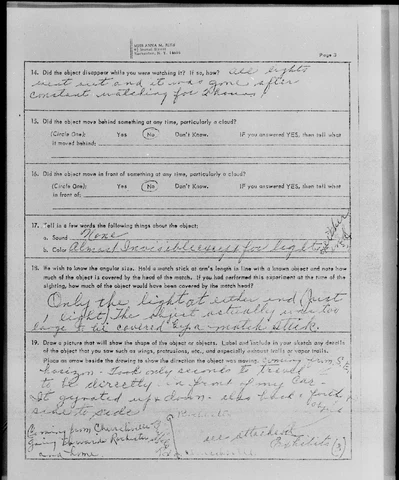 Page 3
14. Did the object disappear while you were watching it? If so, how? All lights
went out and it was gone after
constant watching for 2 hours!
15. Did the object move behind something at any time, particularly a cloud?
(Circle One): Yes No Don't Know. IF you answered YES, then tell what
it moved behind:
16. Did the object move in front of something at any time, particularly a cloud?
(Circle One): Yes No Don't Know. IF you answered YES, then tell what
in front of:
17. Tell in a few words the following things about the object:
a. Sound None
b. Color Almost Invisible except for lights
18. We wish to know the angular size. Hold a match stick at arm's length in line with a known object and note how
much of the object is covered by the head of the match. If you had performed this experiment at the time of the
sighting, how much of the object would have been covered by the match head?
Only the light at either end (Just
1 light) The object actually was too
large to be covered by a match stick.
19. Draw a picture that will show the shape of the object or objects. Label and include in your sketch any details
of the object that you saw such as wings, protrusions, etc., and especially exhaust trails or vapor trails.
Place an arrow beside the drawing to show the direction the object was moving. Coming from S.E.
horizon. Took only seconds to travel
to be directly in front of my car.
It gyrated up + down - also back + forth +
side to side
Coming from Churchville
going toward Rochester
and home.
see attached
Exhibits